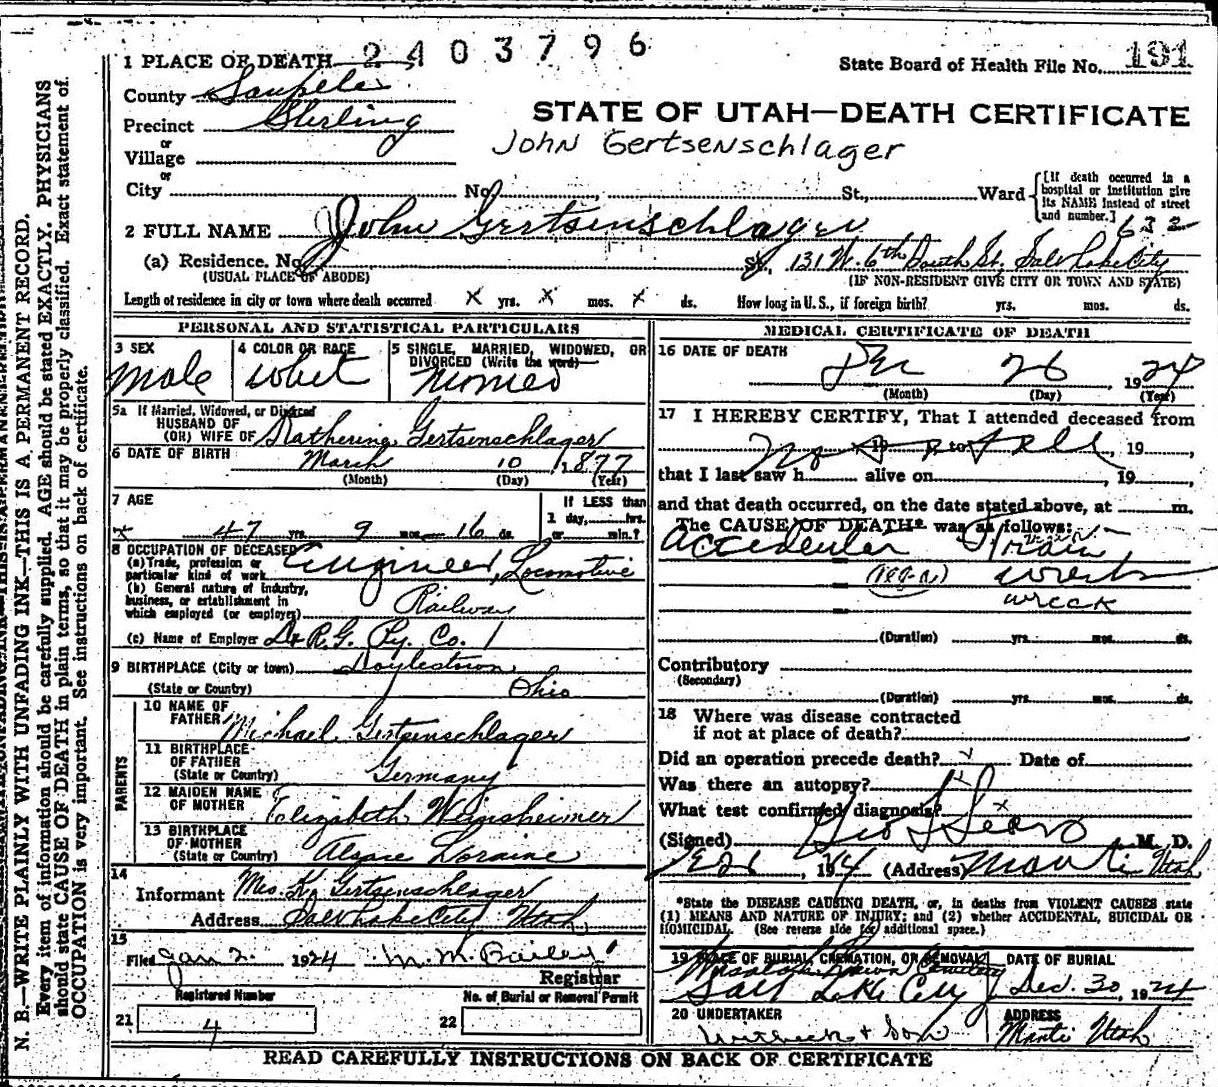 2403796
1 PLACE OF DEATH
State Board of Health File No. 191
County Sanpete
STATE OF UTAH—DEATH CERTIFICATE
Precinct Sterling
John Gertsenschlager
or
Village
or
City No. St., Ward
[If death occurred in a
hospital or institution give
its NAME instead of street
and number.]
632
2 FULL NAME John Gertsenschlager
(a) Residence. No. St., 131 W. 6th South St. Salt Lake City
(USUAL PLACE OF ABODE) (IF NON-RESIDENT GIVE CITY OR TOWN AND STATE)
Length of residence in city or town where death occurred x yrs. x mos. x ds. How long in U. S., if foreign birth? yrs. mos. ds.
PERSONAL AND STATISTICAL PARTICULARS
3 SEX
Male
4 COLOR OR RACE
Whit
5 SINGLE, MARRIED, WIDOWED, OR
DIVORCED (Write the word)
5a If Married, Widowed, or Divorced
HUSBAND OF
(OR) WIFE OF Katherine Gertsenschlager
6 DATE OF BIRTH March 10 1877
(Month) (Day) (Year)
7 AGE
If LESS than
1 day, hrs.
or min.?
x 47 yrs. 9 mos. 16 ds.
8 OCCUPATION OF DECEASED
(a) Trade, profession or
particular kind of work Engineer, Locomotive
(b) General nature of industry,
business, or establishment in
which employed (or employer) Railway
(c) Name of Employer D & R. G. Ry. Co. 1
9 BIRTHPLACE (City or town) Doylestown
(State or Country) Ohio
PARENTS
10 NAME OF
FATHER Michael Gertsenschlager
11 BIRTHPLACE
OF FATHER
(State or Country) Germany
12 MAIDEN NAME
OF MOTHER Elizabeth Weinsheimer
13 BIRTHPLACE
OF MOTHER
(State or Country) Alsace Loraine
14
Informant Mrs. K. Gertsenschlager
Address Salt Lake City Utah
15
Filed Jan 2 1924 M. M. Bailey
Registrar
Registered Number
21 4
No. of Burial or Removal Permit
22
MEDICAL CERTIFICATE OF DEATH
16 DATE OF DEATH
Dec 26, 1924
(Month) (Day) (Year)
17 I HEREBY CERTIFY, That I attended deceased from
, 19 to , 19
that I last saw h alive on , 19
and that death occurred, on the date stated above, at m.
The CAUSE OF DEATH* was as follows:
Accidental Train
wreck
wreck
(Duration) yrs. mos. ds.
Contributory
(Secondary)
(Duration) yrs. mos. ds.
18 Where was disease contracted
if not at place of death?
Did an operation precede death? x Date of
Was there an autopsy?
What test confirmed diagnosis? x
(Signed) M. D.
, 1924 (Address) Manti Utah
*State the DISEASE CAUSING DEATH, or, in deaths from VIOLENT CAUSES state
(1) MEANS AND NATURE OF INJURY; and (2) whether ACCIDENTAL, SUICIDAL OR
HOMICIDAL. (See reverse side for additional space.)
19 PLACE OF BURIAL, CREMATION, OR REMOVAL
Lawn Cemetery
Salt Lake City
DATE OF BURIAL
Dec. 30, 1924
20 UNDERTAKER
& Son
ADDRESS
Manti Utah
READ CAREFULLY INSTRUCTIONS ON BACK OF CERTIFICATE
N. B.—WRITE PLAINLY WITH UNFADING INK—THIS IS A PERMANENT RECORD.
Every item of information should be carefully supplied. AGE should be stated EXACTLY. PHYSICIANS
should state CAUSE OF DEATH in plain terms, so that it may be properly classified. Exact statement of
OCCUPATION is very important. See instructions on back of certificate.